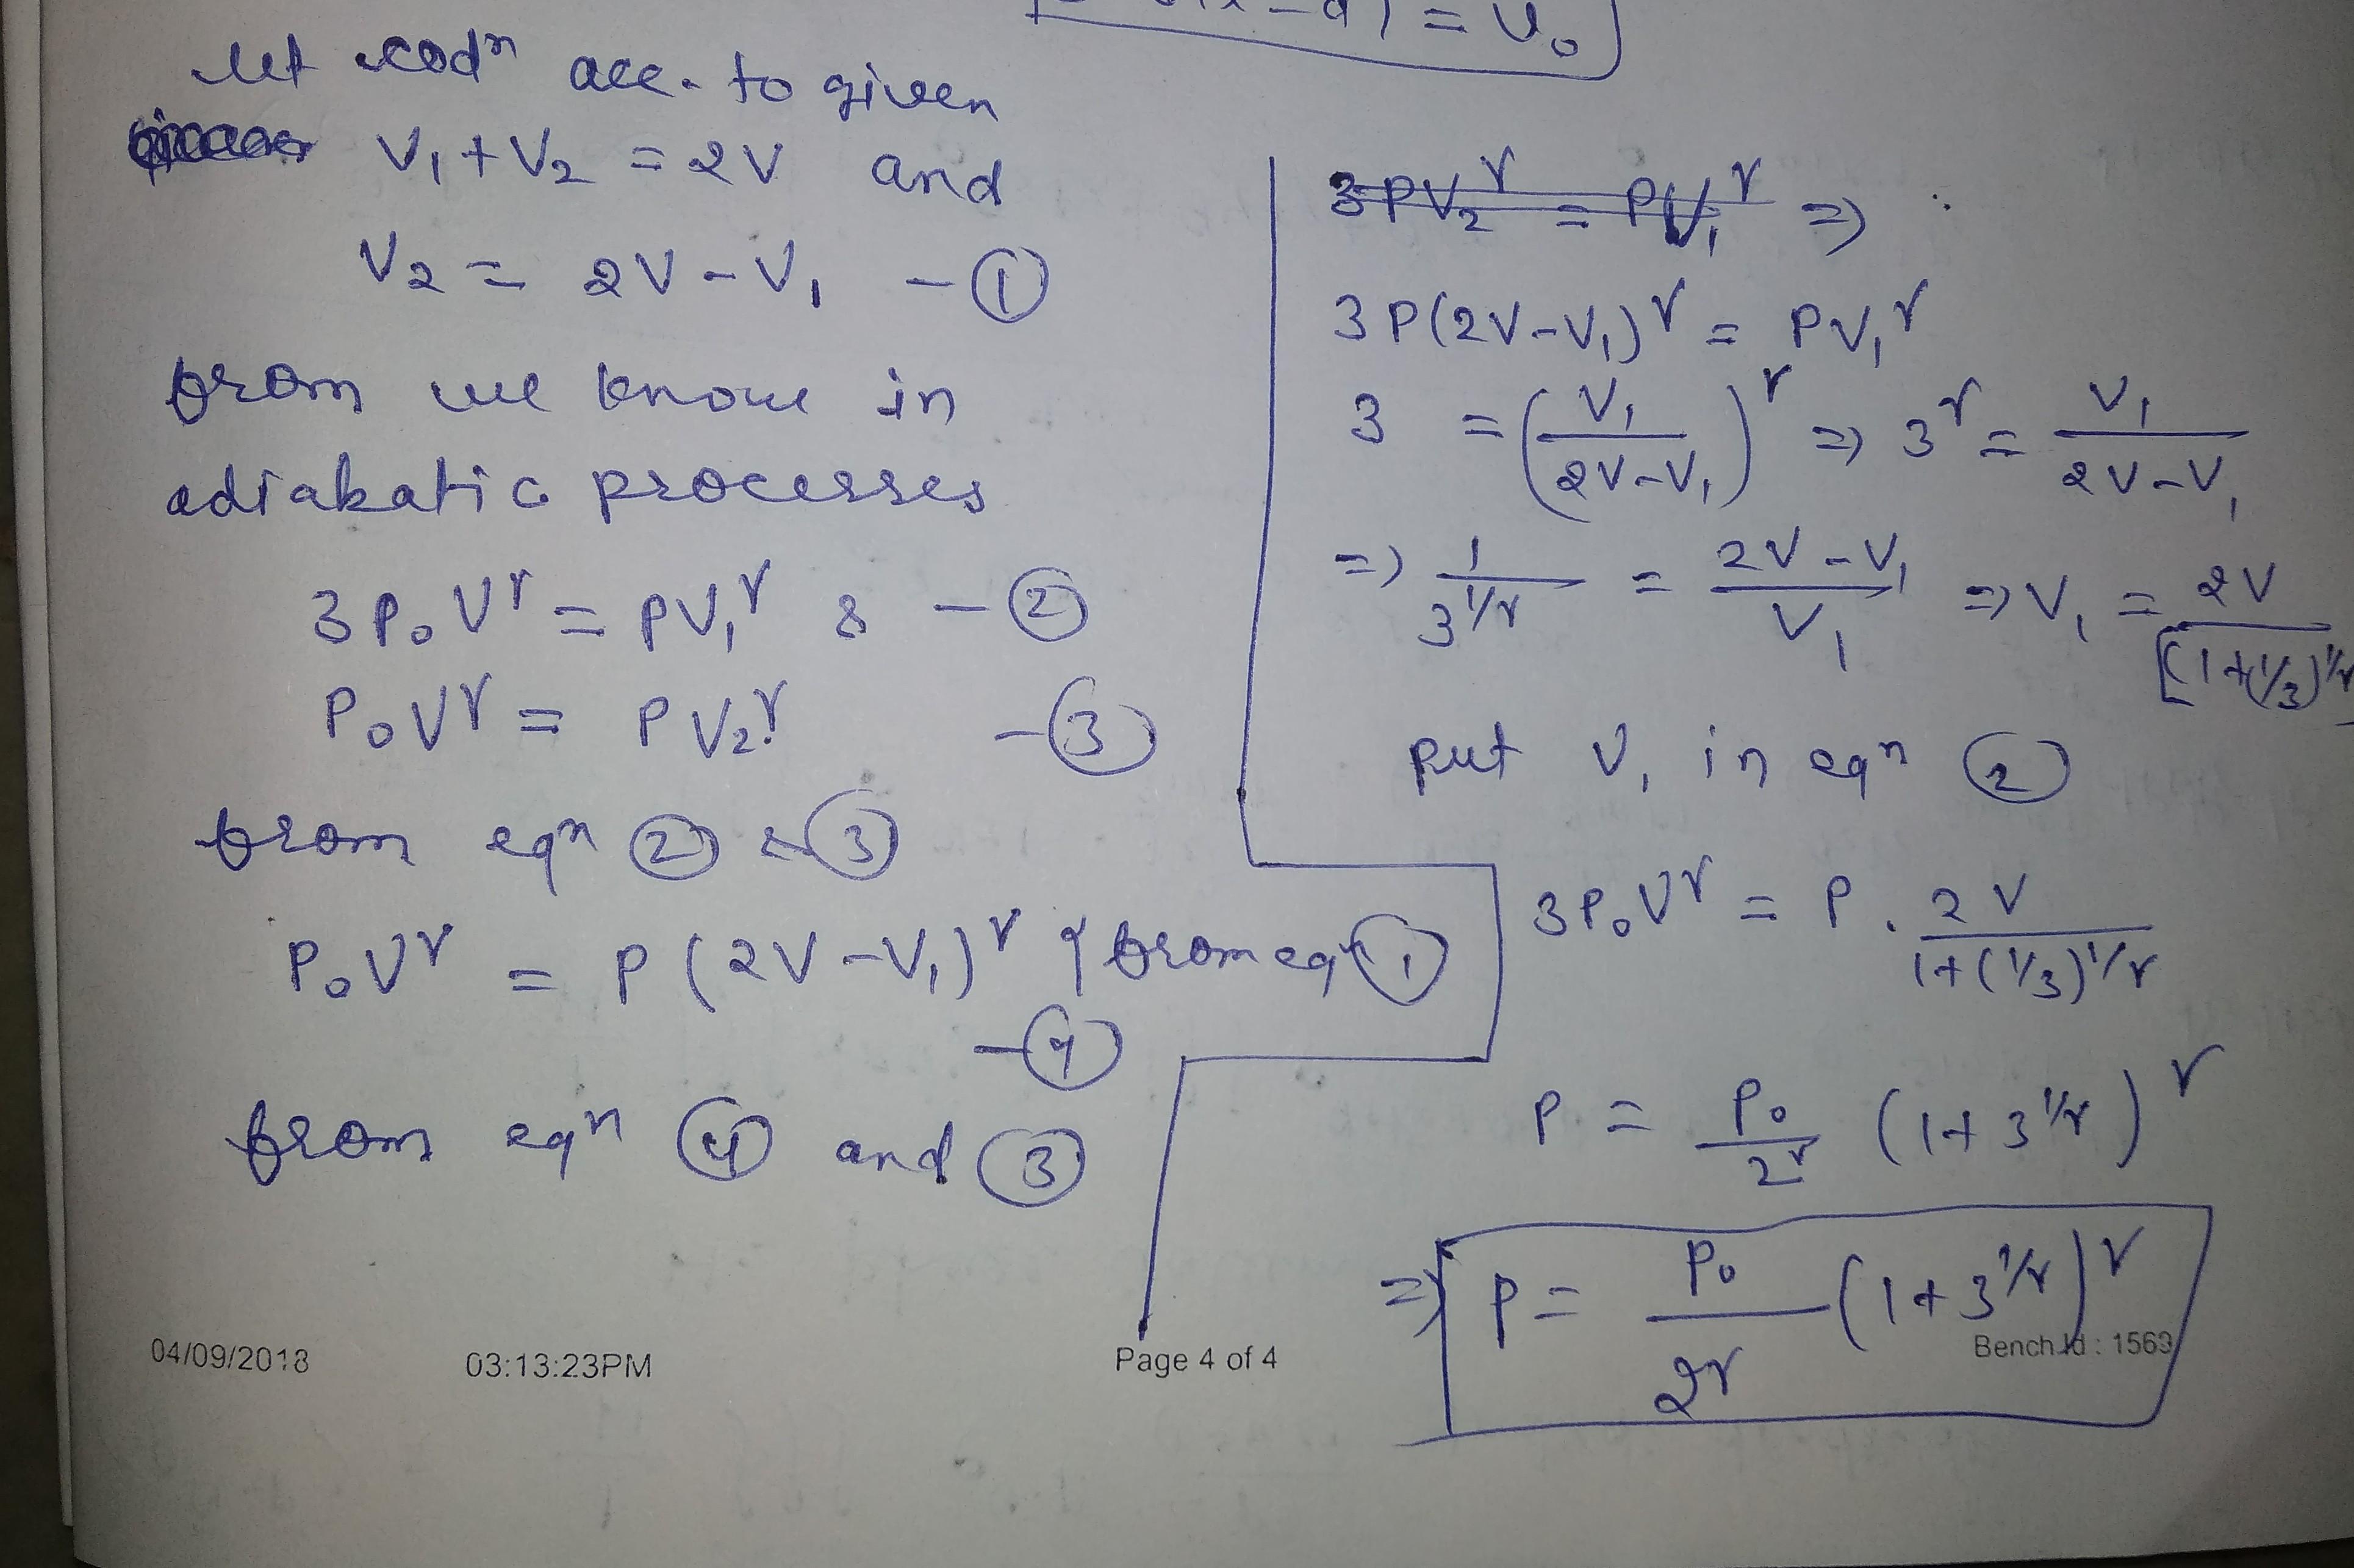 let codⁿ acc. to given
V₁ + V₂ = 2V and
V₂ = 2V - V₁ - ①
from we know in
adiabatic processes
3P₀Vʳ = PV₁ʳ & - ②
P₀Vʳ = PV₂ʳ - ③
from eqⁿ ② & ③
P₀Vʳ = P(2V - V₁)ʳ { from eqⁿ ①
- ④
from eqⁿ ④ and ③
= V₀
3PV₂ʳ = PV₁ʳ ⇒
3P(2V - V₁)ʳ = PV₁ʳ
3 = (V₁/(2V - V₁))ʳ ⇒ 3ʳ = V₁/(2V - V₁)
⇒ 1/3^(1/r) = (2V - V₁)/V₁ ⇒ V₁ = 2V/[(1+(1/3)^(1/r)]
put V₁ in eqⁿ ②
3P₀Vʳ = P . 2V/(1+(1/3)^(1/r))
P = P₀/2ʳ (1+3^(1/r))ʳ
⇒ P = P₀/2r (1+3^(1/r))ʳ
04/09/2018 03:13:23PM Page 4 of 4 Bench Id : 1569